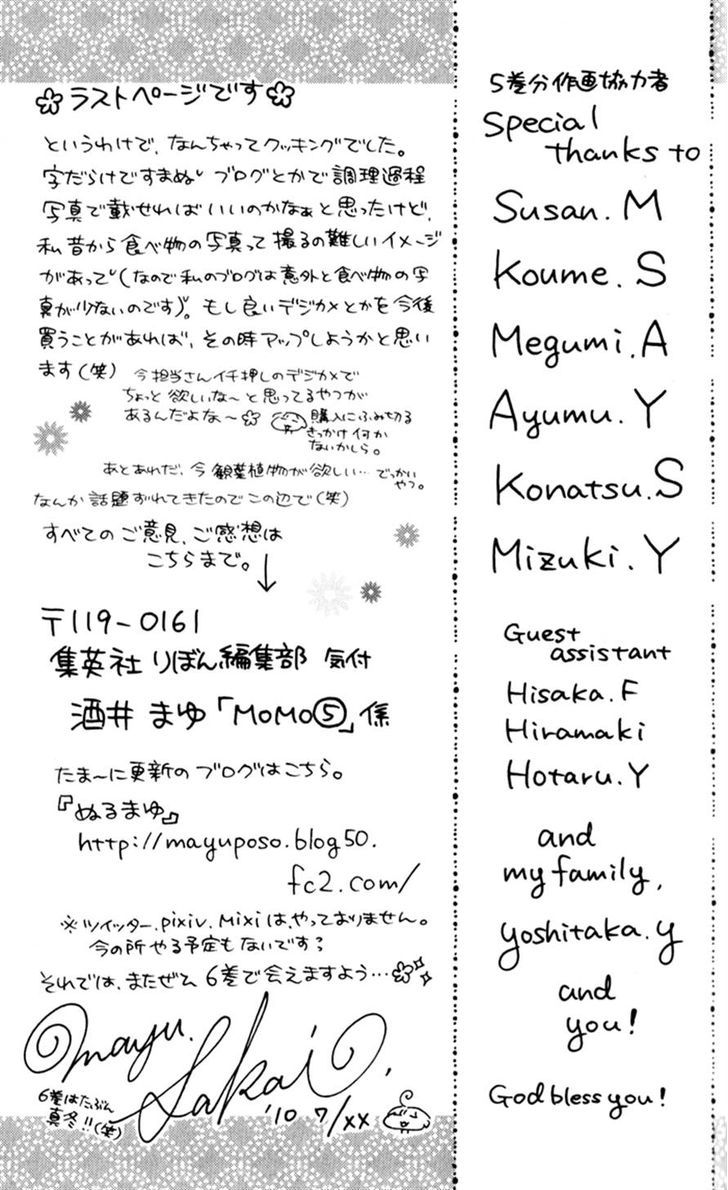 ラストページです
というわけで、なんちゃってクッキングでした。
字だらけですまぬ ブログとかで調理過程
写真で載せればいいのかなぁと思ったけど、
私昔から食べ物の写真って撮るの難しいイメージ
があって(なので私のブログは意外と食べ物の写
真が少ないのです)。もし良いデジカメとかを今後
買うことがあれば、その時アップしようかと思い
ます(笑)
今担当さんイチ押しのデジカメで
ちょっと欲しいな〜と思ってるやつが
あるんだよな〜
購入にふみ切る
きっかけ何か
ないかしら。
あとあれだ、今観葉植物が欲しい…でっかい
やつ。
なんか話題ずれてきたのでこの辺で(笑)
すべてのご意見、ご感想は
こちらまで。↓
〒119-0161
集英社 りぼん編集部 気付
酒井 まゆ「MOMO⑤」係
たま〜に更新のブログはこちら。
『ぬるまゆ』
http://mayuposo.blog50.
fc2.com/
※ツイッター、pixiv、Mixiは、やっておりません。
今の所やる予定もないです?
それでは、またぜひ6巻で会えますよう…
mayu.
Sakai
6巻はたぶん
真冬!!(笑)
'10 7/XX
5巻分作画協力者
Special
thanks to
Susan. M
Koume. S
Megumi. A
Ayumu. Y
Konatsu. S
Mizuki. Y
Guest
assistant
Hisaka. F
Hiramaki
Hotaru. Y
and
my family,
yoshitaka. y
and
you!
God bless you!